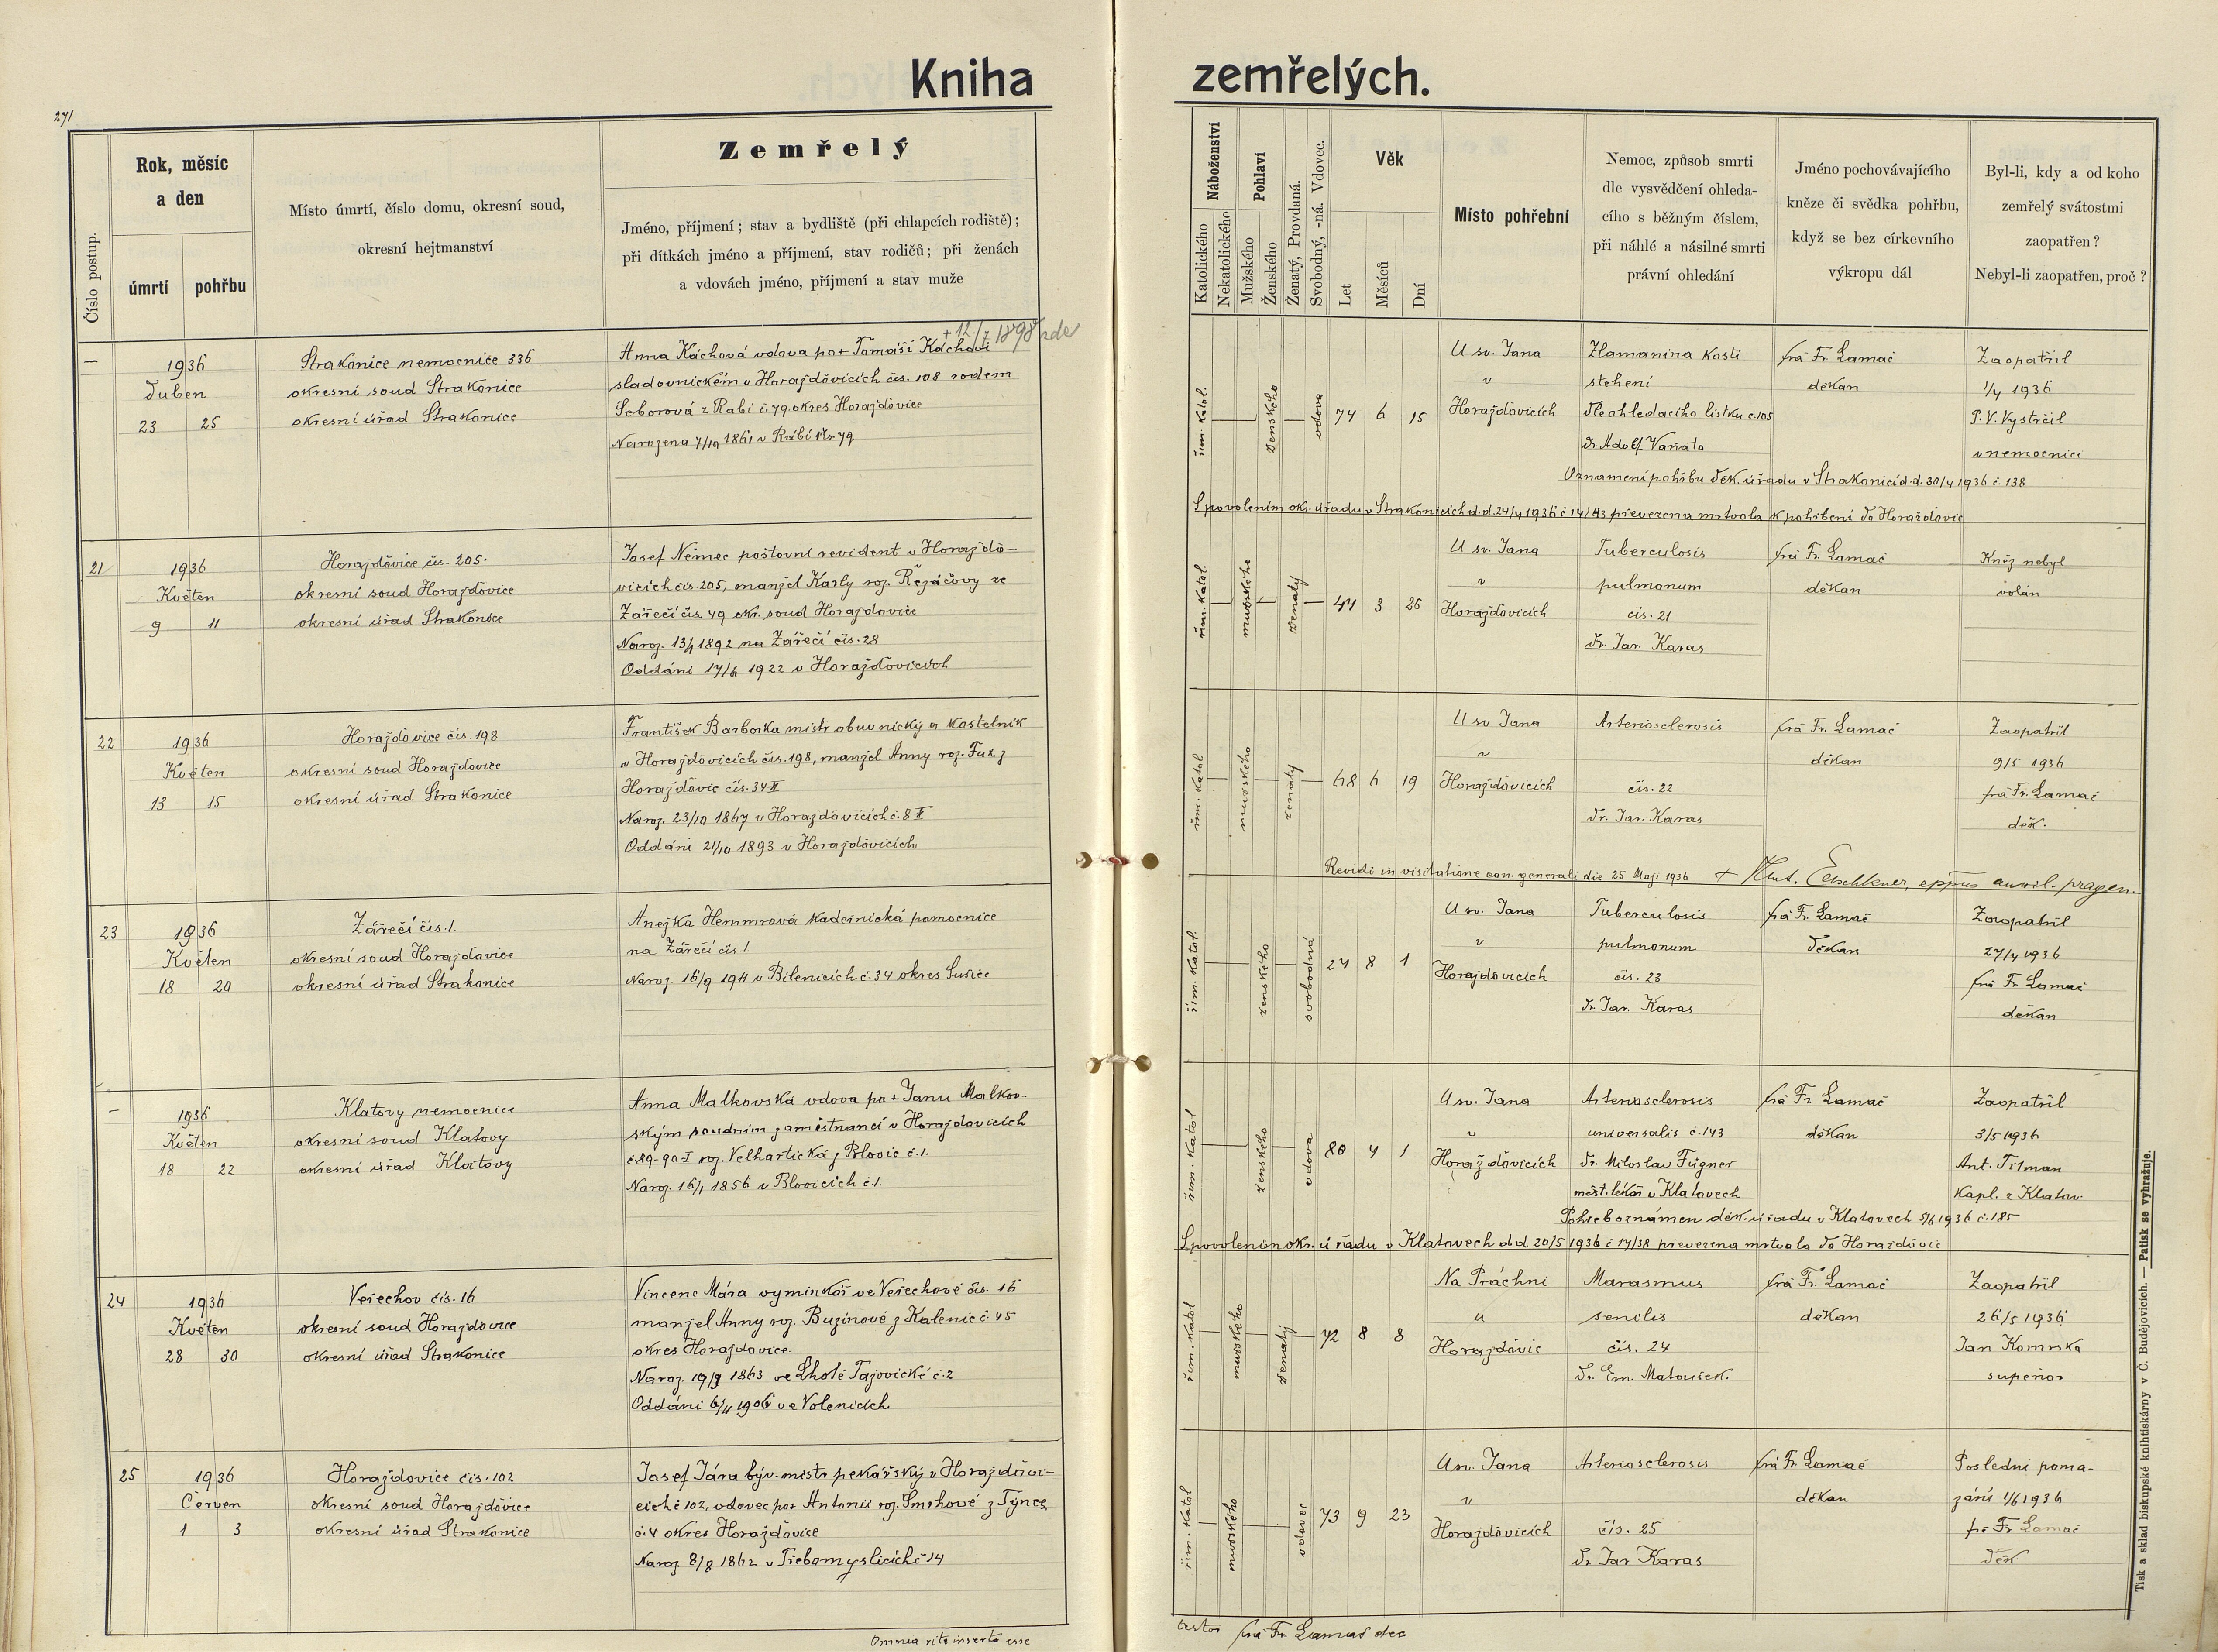 Kniha zemřelých.
271
Číslo postup.
Rok, měsíc
a den
úmrtí
pohřbu
Místo úmrtí, číslo domu, okresní soud,
okresní hejtmanství
Zemřelý
Jméno, příjmení; stav a bydliště (při chlapcích rodiště);
při dítkách jméno a příjmení, stav rodičů; při ženách
a vdovách jméno, příjmení a stav muže
Náboženství
Katolického
Nekatolického
Pohlaví
Mužského
Ženského
Ženatý, Provdaná.
Svobodný, -ná. Vdovec.
Věk
Let
Měsíců
Dní
Místo pohřební
Nemoc, způsob smrti
dle vysvědčení ohleda-
cího s běžným číslem,
při náhlé a násilné smrti
právní ohledání
Jméno pochovávajícího
kněze či svědka pohřbu,
když se bez církevního
výkropu dál
Byl-li, kdy a od koho
zemřelý svátostmi
zaopatřen?
Nebyl-li zaopatřen, proč?
—
1936
Duben
23 25
Strakonice nemocnice 336
okresní soud Strakonice
okresní úřad Strakonice
+ 12/7 1898 zde
Anna Káchová vdova po + Tomáši Káchovi
sladovnickém v Horažďovicích čís. 108 rodem
Seborová z Rabí č. 79. okres Horažďovice
Narozena 7/10 1861 v Rábí Nr 79
řím. katol.
ženského
vdova
74 6 15
U sv. Jana
v
Horažďovicích
Zlamanina kosti
stehení
Dle ohledacího lístku č. 105
Dr. Adolf Vaňata
frá Fr. Lamač
děkan
Zaopatřil
1/4 1936
P. V. Vystrčil
v nemocnici
Oznamení pohřbu děk. úřadu v Strakonici d.d. 30/4 1936 č. 138
S povolením okr. úřadu v Strakonicích d.d. 24/4 1936 č 14/43 převezena mrtvola k pohřbení do Horažďovic
21
1936
Květen
9 11
Horažďovice čís. 205.
okresní soud Horažďovice
okresní úřad Strakonice
Josef Němec poštovní revident v Horažďo-
vicích čís. 205, manžel Karly roz. Řezáčovy ze
Zářečí čís. 49 okr. soud Horažďovice
Naroz. 13/1 1892 na Zářečí čís. 28
Oddáni 17/6 1922 v Horažďovicích
řím. katol.
mužského
ženatý
44 3 26
U sv. Jana
v
Horažďovicích
Tuberculosis
pulmonum
čís. 21
Dr. Jar. Karas
frá Fr. Lamač
děkan
Kněz nebyl
volán
22
1936
Květen
13 15
Horažďovice čís. 198
okresní soud Horažďovice
okresní úřad Strakonice
František Barborka mistr obuvnický a kostelník
v Horažďovicích čís. 198, manžel Anny roz. Fux z
Horažďovic čís. 34 II
Naroz. 23/10 1867 v Horažďovicích č. 8 II
Oddáni 21/10 1893 v Horažďovicích
řím. katol
mužského
ženatý
68 6 19
U sv Jana
v
Horažďovicích
Arteriosclerosis
čís. 22
Dr. Jar. Karas
frá Fr. Lamač
děkan
Zaopatřil
9/5 1936
frá Fr. Lamač
děk.
Revidi in visitatione can. generali die 25 Maji 1936 + Ant. Eltschkner, eppus auxil. pragen.
23
1936
Květen
18 20
Zářečí čís. 1.
okresní soud Horažďovice
okresní úřad Strakonice
Anežka Hemmrová kadeřnická pomocnice
na Zářečí čís. 1
Naroz. 16/9 1911 v Bilenicích č. 34 okres Sušice
řím. katol.
ženského
svobodná
24 8 1
U sv. Jana
v
Horažďovicích
Tuberculosis
pulmonum
čís. 23
Dr. Jar. Karas
frá Fr. Lamač
Děkan
Zaopatřil
27/4 1936
frá Fr Lamač
děkan
—
1936
Květen
18 22
Klatovy nemocnice
okresní soud Klatovy
okresní úřad Klatovy
Anna Malkovská vdova po + Janu Malkov-
ským soudním zaměstnanci v Horažďovicích
č. 89-90-I roz. Velhartická z Blovic č. 1.
Naroz. 16/1 1856 v Blovicích č. 1.
řím. katol
ženského
vdova
80 4 1
U sv. Jana
v
Horažďovicích
Arteriosclerosis
universalis č. 143
Dr. Miloslav Fügner
měst. lékař v Klatovech
frá Fr. Lamač
děkan
Zaopatřil
3/5 1936
Ant. Tilman
kapl. z Klatov
Pohřeb oznámen děk. úřadu v Klatovech 5/6 1936 č. 185
S povolením okr. úřadu v Klatovech d d 20/5 1936 č 17/38 převezena mrtvola do Horažďovic
24
1936
Květen
28 30
Veřechov čís. 16
okresní soud Horažďovice
okresní úřad Strakonice
Vincenc Mára výminkář ve Veřechově čís. 16
manžel Anny roz. Buzínové z Kalenic č. 45
okres Horažďovice.
Naroz. 19/9 1863 ve Lhotě Tažovické č. 2
Oddáni 6/11 1906 ve Volenicích.
řím. katol
mužského
ženatý
72 8 8
Na Práchni
u
Horažďovic
Marasmus
senilis
čís. 24
Dr. Em. Matoušek.
frá Fr. Lamač
děkan
Zaopatřil
26/5 1936
Jan Komrska
superior
25
1936
Červen
1 3
Horažďovice čís. 102
okresní soud Horažďovice
okresní úřad Strakonice
Josef Jára býv. mistr pekařský v Horažďovi-
cích č 102, vdovec po + Antonii roz. Smrhové z Týnce
č. 4 okres Horažďovice
Naroz 8/8 1862 v Třebomyslicích č 14
řím. katol
mužského
vdovec
73 9 23
U sv. Jana
v
Horažďovicích
Arteriosclerosis
čís. 25
Dr Jar Karas
frá Fr. Lamač
děkan
Poslední poma-
zání 1/6 1936
frá Fr Lamač
Děk.
Omnia rite inserta esse
testor frá Fr. Lamač dec
Tisk a sklad biskupské knihtiskárny v Č. Budějovicích. — Patisk se vyhražuje.